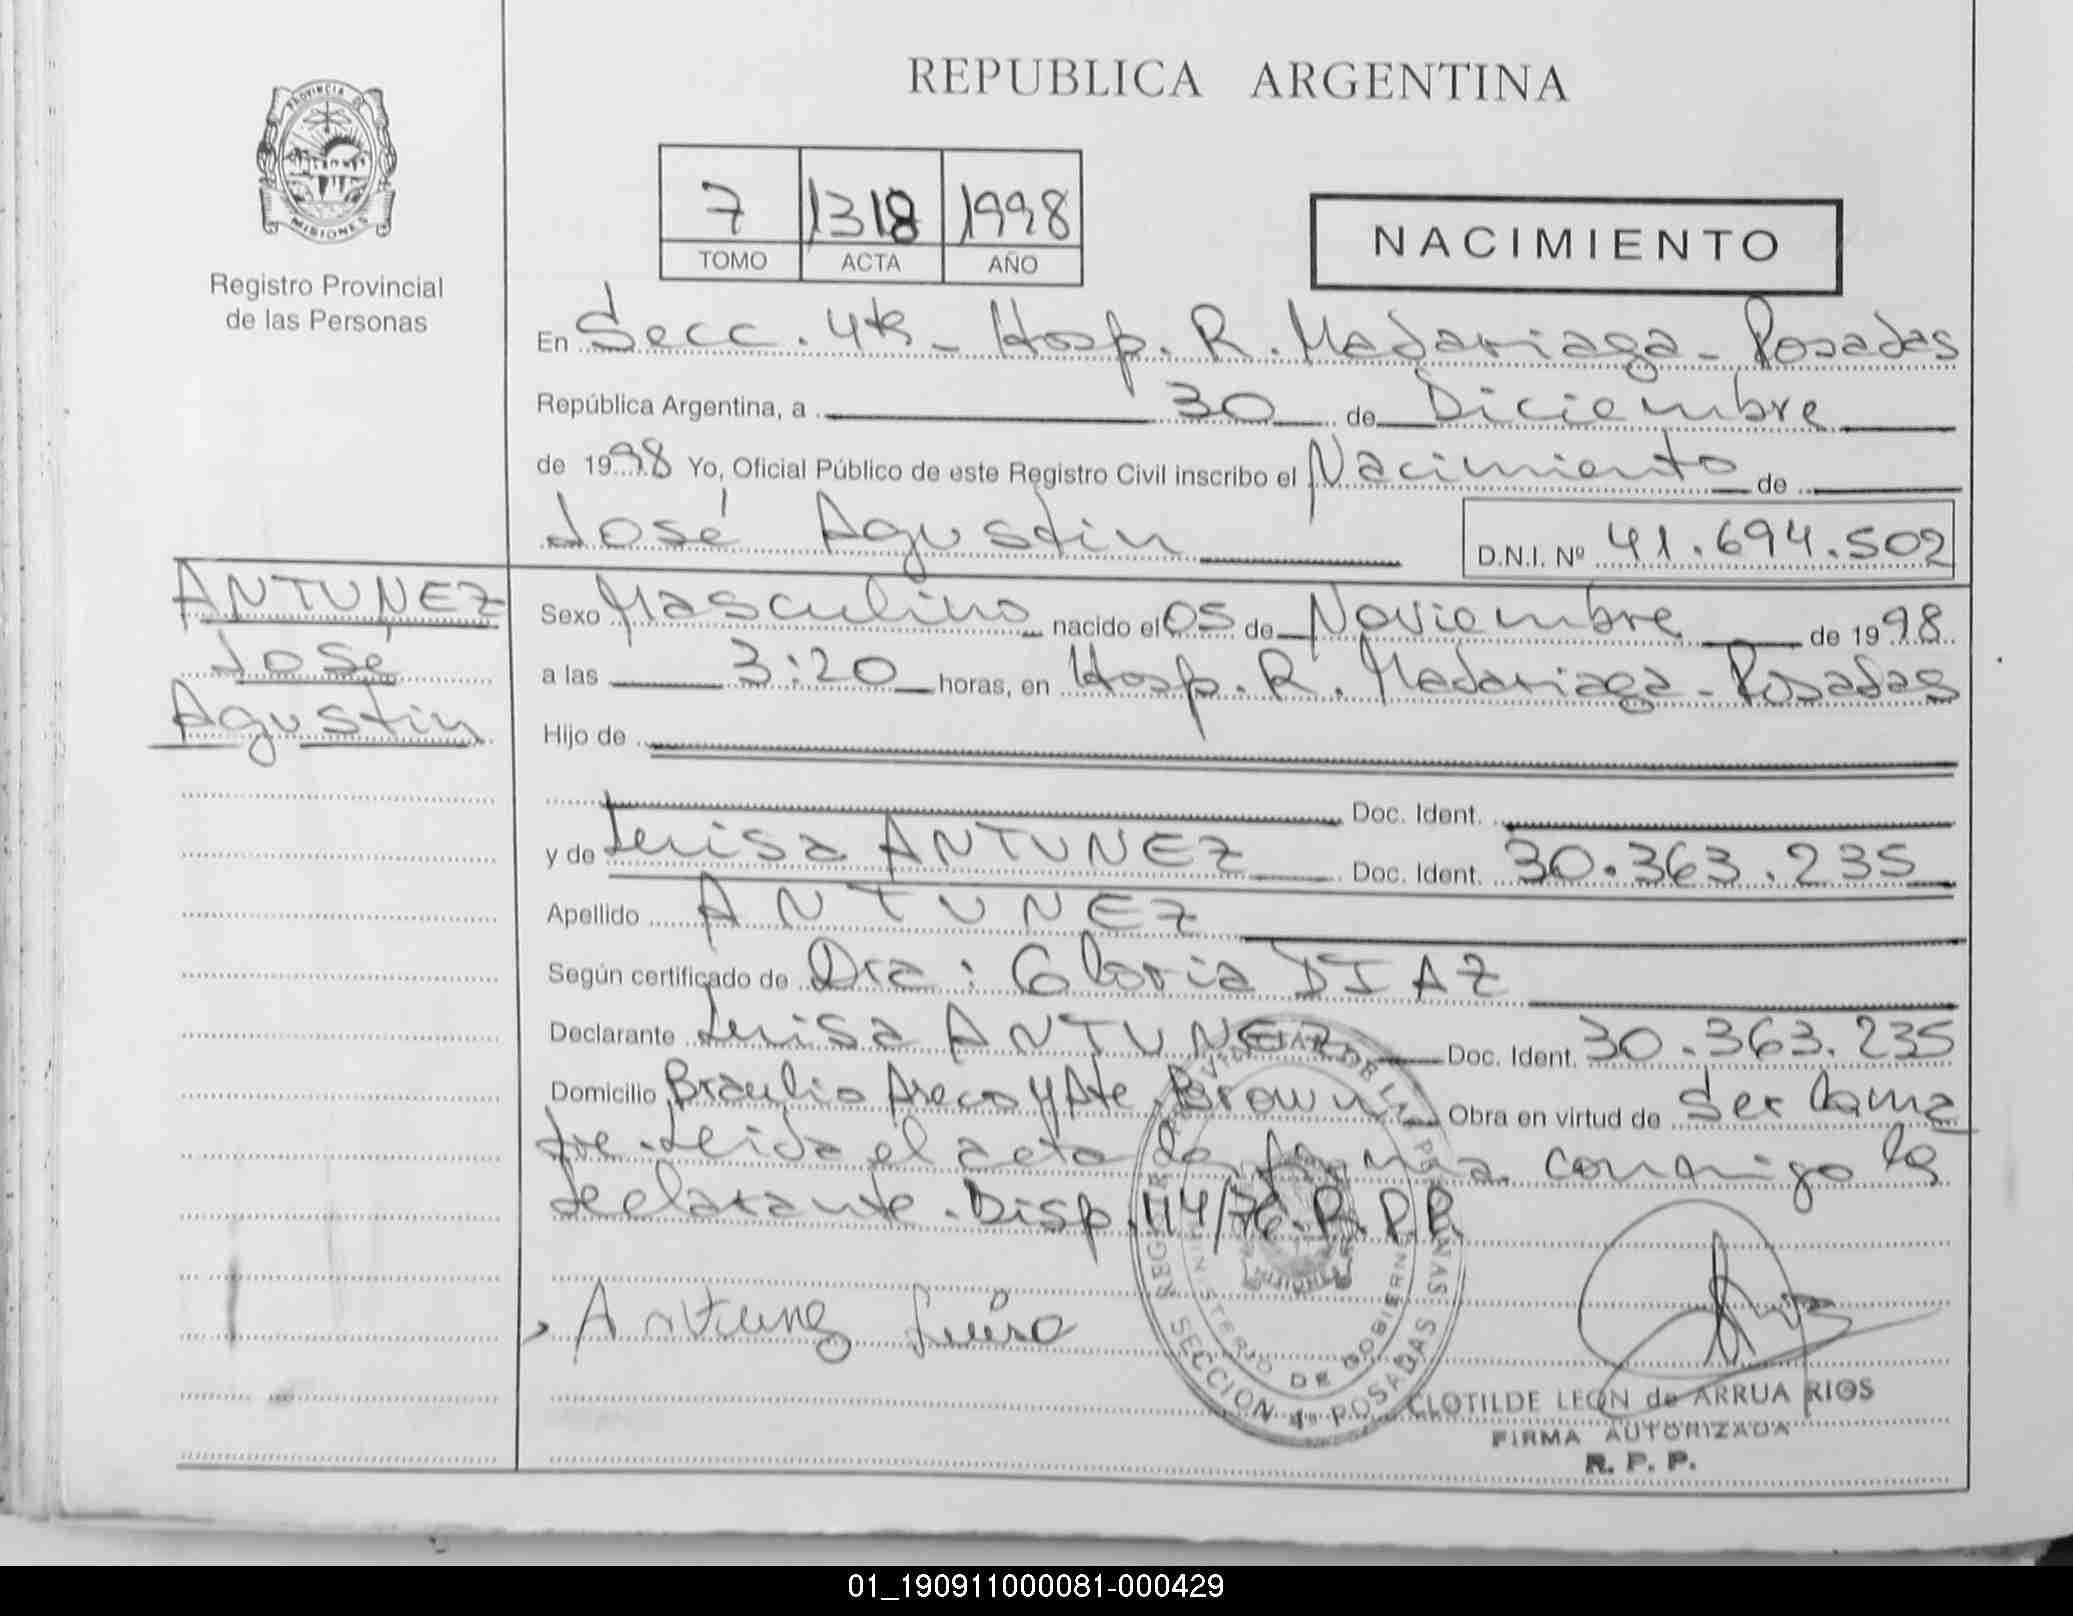 REPUBLICA ARGENTINA
PROVINCIA DE
MISIONES
Registro Provincial
de las Personas
7 1318 1998
TOMO ACTA AÑO
NACIMIENTO
En Secc. 4ta - Hosp. R. Madariaga - Posadas
República Argentina, a 30 de Diciembre
de 1998 Yo, Oficial Público de este Registro Civil inscribo el Nacimiento de
José Agustin D.N.I. Nº 41.694.502
ANTUNEZ
José
Agustin
Sexo Masculino nacido el 05 de Noviembre de 1998
a las 3:20 horas, en Hosp. R. Madariaga - Posadas
Hijo de
Doc. Ident.
y de Luisa ANTUNEZ Doc. Ident. 30.363.235
Apellido ANTUNEZ
Según certificado de Dra: Gloria DIAZ
Declarante Luisa ANTUNEZ Doc. Ident. 30.363.235
Domicilio Braulio Areco y Ate. Brown Obra en virtud de Ser la ma
dre. Leida el acta la firma conmigo la
declarante. Disp. 114/76. R.P.P.
Antunez Luisa
MINISTERIO DE GOBIERNO
SECCION 4ª POSADAS
MISIONES
CLOTILDE LEON de ARRUA RIOS
FIRMA AUTORIZADA
R. P. P.
01_190911000081-000429